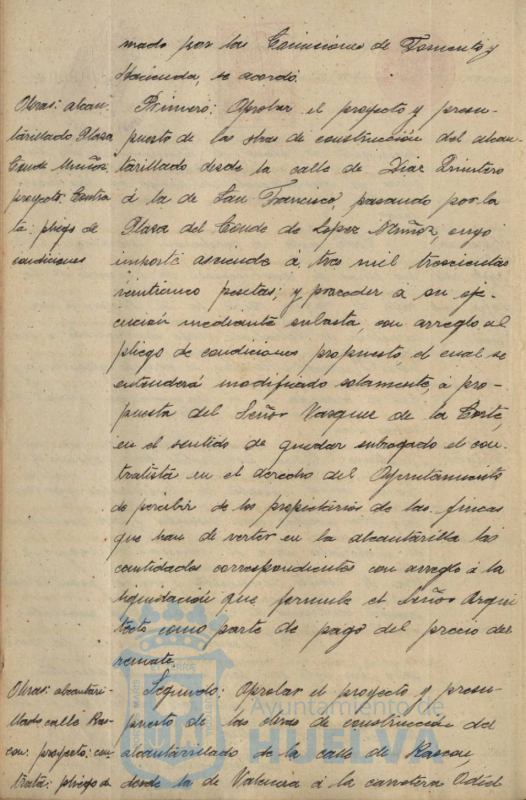 mado por las Comisiones de Fomento y
Hacienda, se acordó.
Obras: alcan-
tarillado Plaza
Conde Muñoz:
proyecto: Contra
ta: pliego de
condiciones
Primero: Aprobar el proyecto y presu-
puesto de las obras de construcción del alcan-
tarillado desde la calle de Diaz Quintero
á la de San Francisco, pasando por la
Plaza del Conde de López Muñoz, cuyo
importe asciende á tres mil trescientas
veinticinco pesetas; y proceder á su eje-
cución mediante subasta, con arreglo al
pliego de condiciones propuesto, el cual se
entenderá modificado solamente, á pro-
puesta del Señor Vazquez de la Corte,
en el sentido de quedar subrogado el con-
tratista en el derecho del Ayuntamiento
de percibir de los propietarios de las fincas
que han de verter en la alcantarilla las
cantidades correspondientes con arreglo á la
liquidación que formule el Señor Arqui
tecto como parte de pago del precio del
remate.
Obras: alcantari-
llado calle Ras-
con: proyecto: con-
trata: pliego de
Segundo: Aprobar el proyecto y presu-
puesto de las obras de construcción del
alcantarillado de la calle de Rascon,
desde la de Valencia á la carretera Odiel
Ayuntamiento de
HUELVA